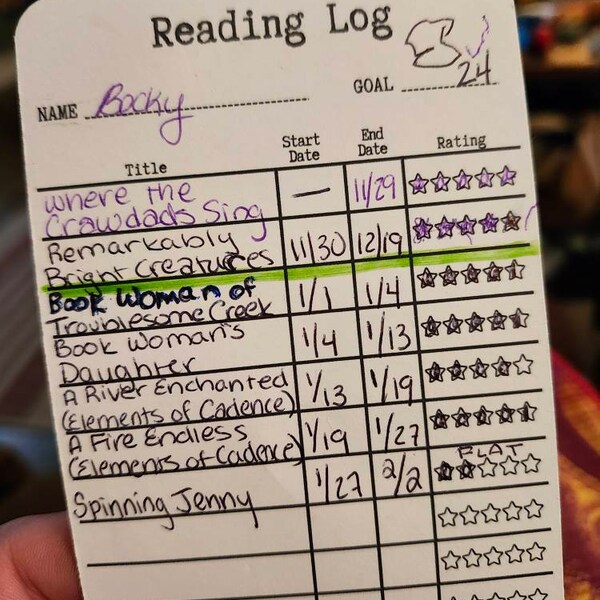 Reading Log
NAME Becky
GOAL 24
Title Start Date End Date Rating
Where the
Crawdads Sing — 11/29
Remarkably
Bright Creatures 11/30 12/19
Book Woman of
Troublesome Creek 1/1 1/4
Book Woman's
Daughter 1/4 1/13
A River Enchanted
(Elements of Cadence) 1/13 1/19
A Fire Endless
(Elements of Cadence) 1/19 1/27
FLAT
Spinning Jenny 1/27 2/2